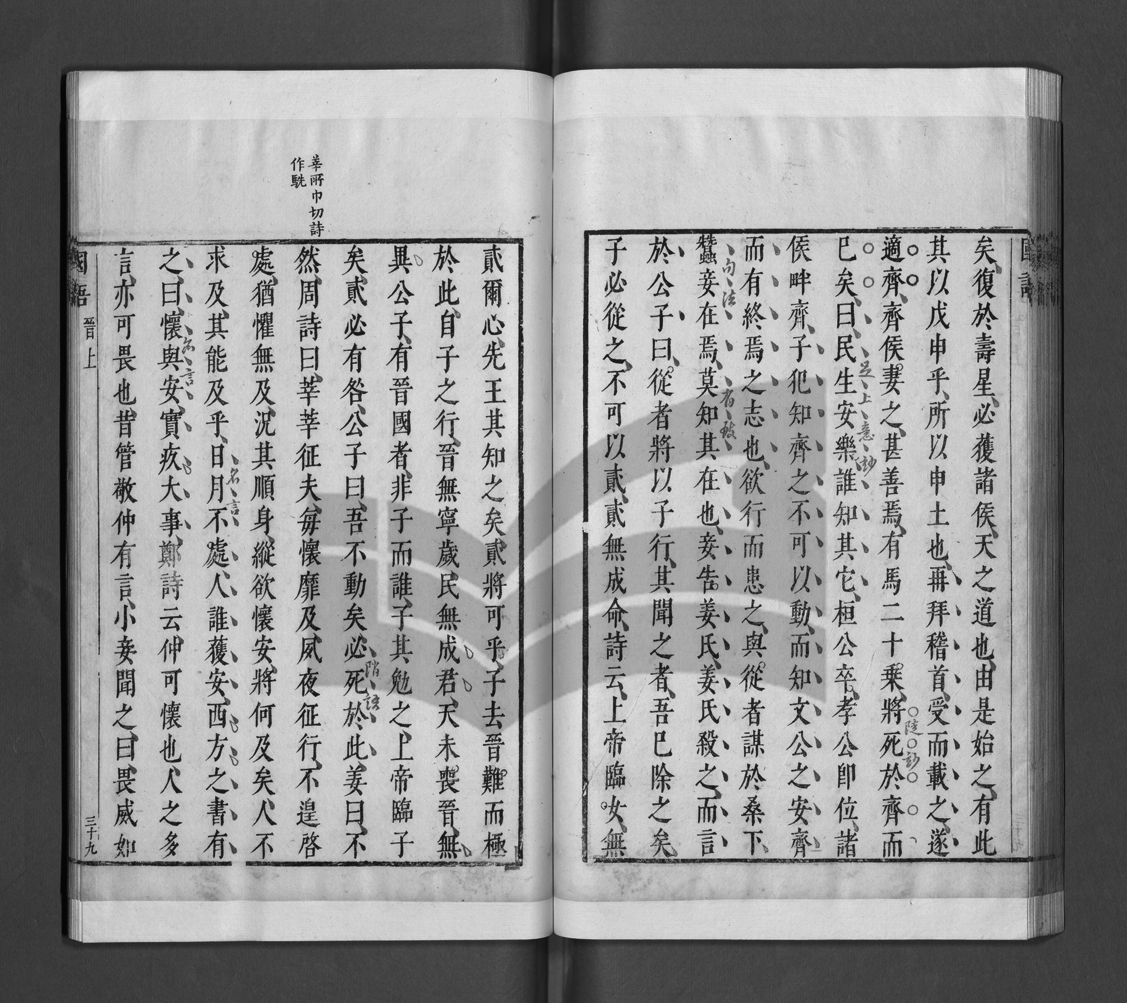 國語
矣復於壽星必獲諸侯天之道也由是始之有此
其以戊申乎所以申土也再拜稽首受而載之遂
適齊齊侯妻之甚善焉有馬二十乘將死於齊而
陡 妙
已矣曰民生安樂誰知其它桓公卒孝公卽位諸
足上意妙
侯畔齊子犯知齊之不可以動而知文公之安齊
而有終焉之志也欲行而患之與從者謀於桑下
蠶妾在焉莫知其在也妾告姜氏姜氏殺之而言
句法
有致
於公子曰從者將以子行其聞之者吾已除之矣
子必從之不可以貳貳無成命詩云上帝臨女無
貳爾心先王其知之矣貳將可乎子去晉難而極
於此自子之行晉無寧歲民無成君天未喪晉無
異公子有晉國者非子而誰子其勉之上帝臨子
矣貳必有咎公子曰吾不動矣必死於此姜曰不
然周詩曰莘莘征夫每懷靡及夙夜征行不遑啓
莘所巾切詩
作駪
處猶懼無及況其順身縱欲懷安將何及矣人不
求及其能及乎日月不處人誰獲安西方之書有
名言
之曰懷與安實疚大事鄭詩云仲可懷也人之多
名言
言亦可畏也昔管敬仲有言小妾聞之曰畏威如
國語
晉上
三十九